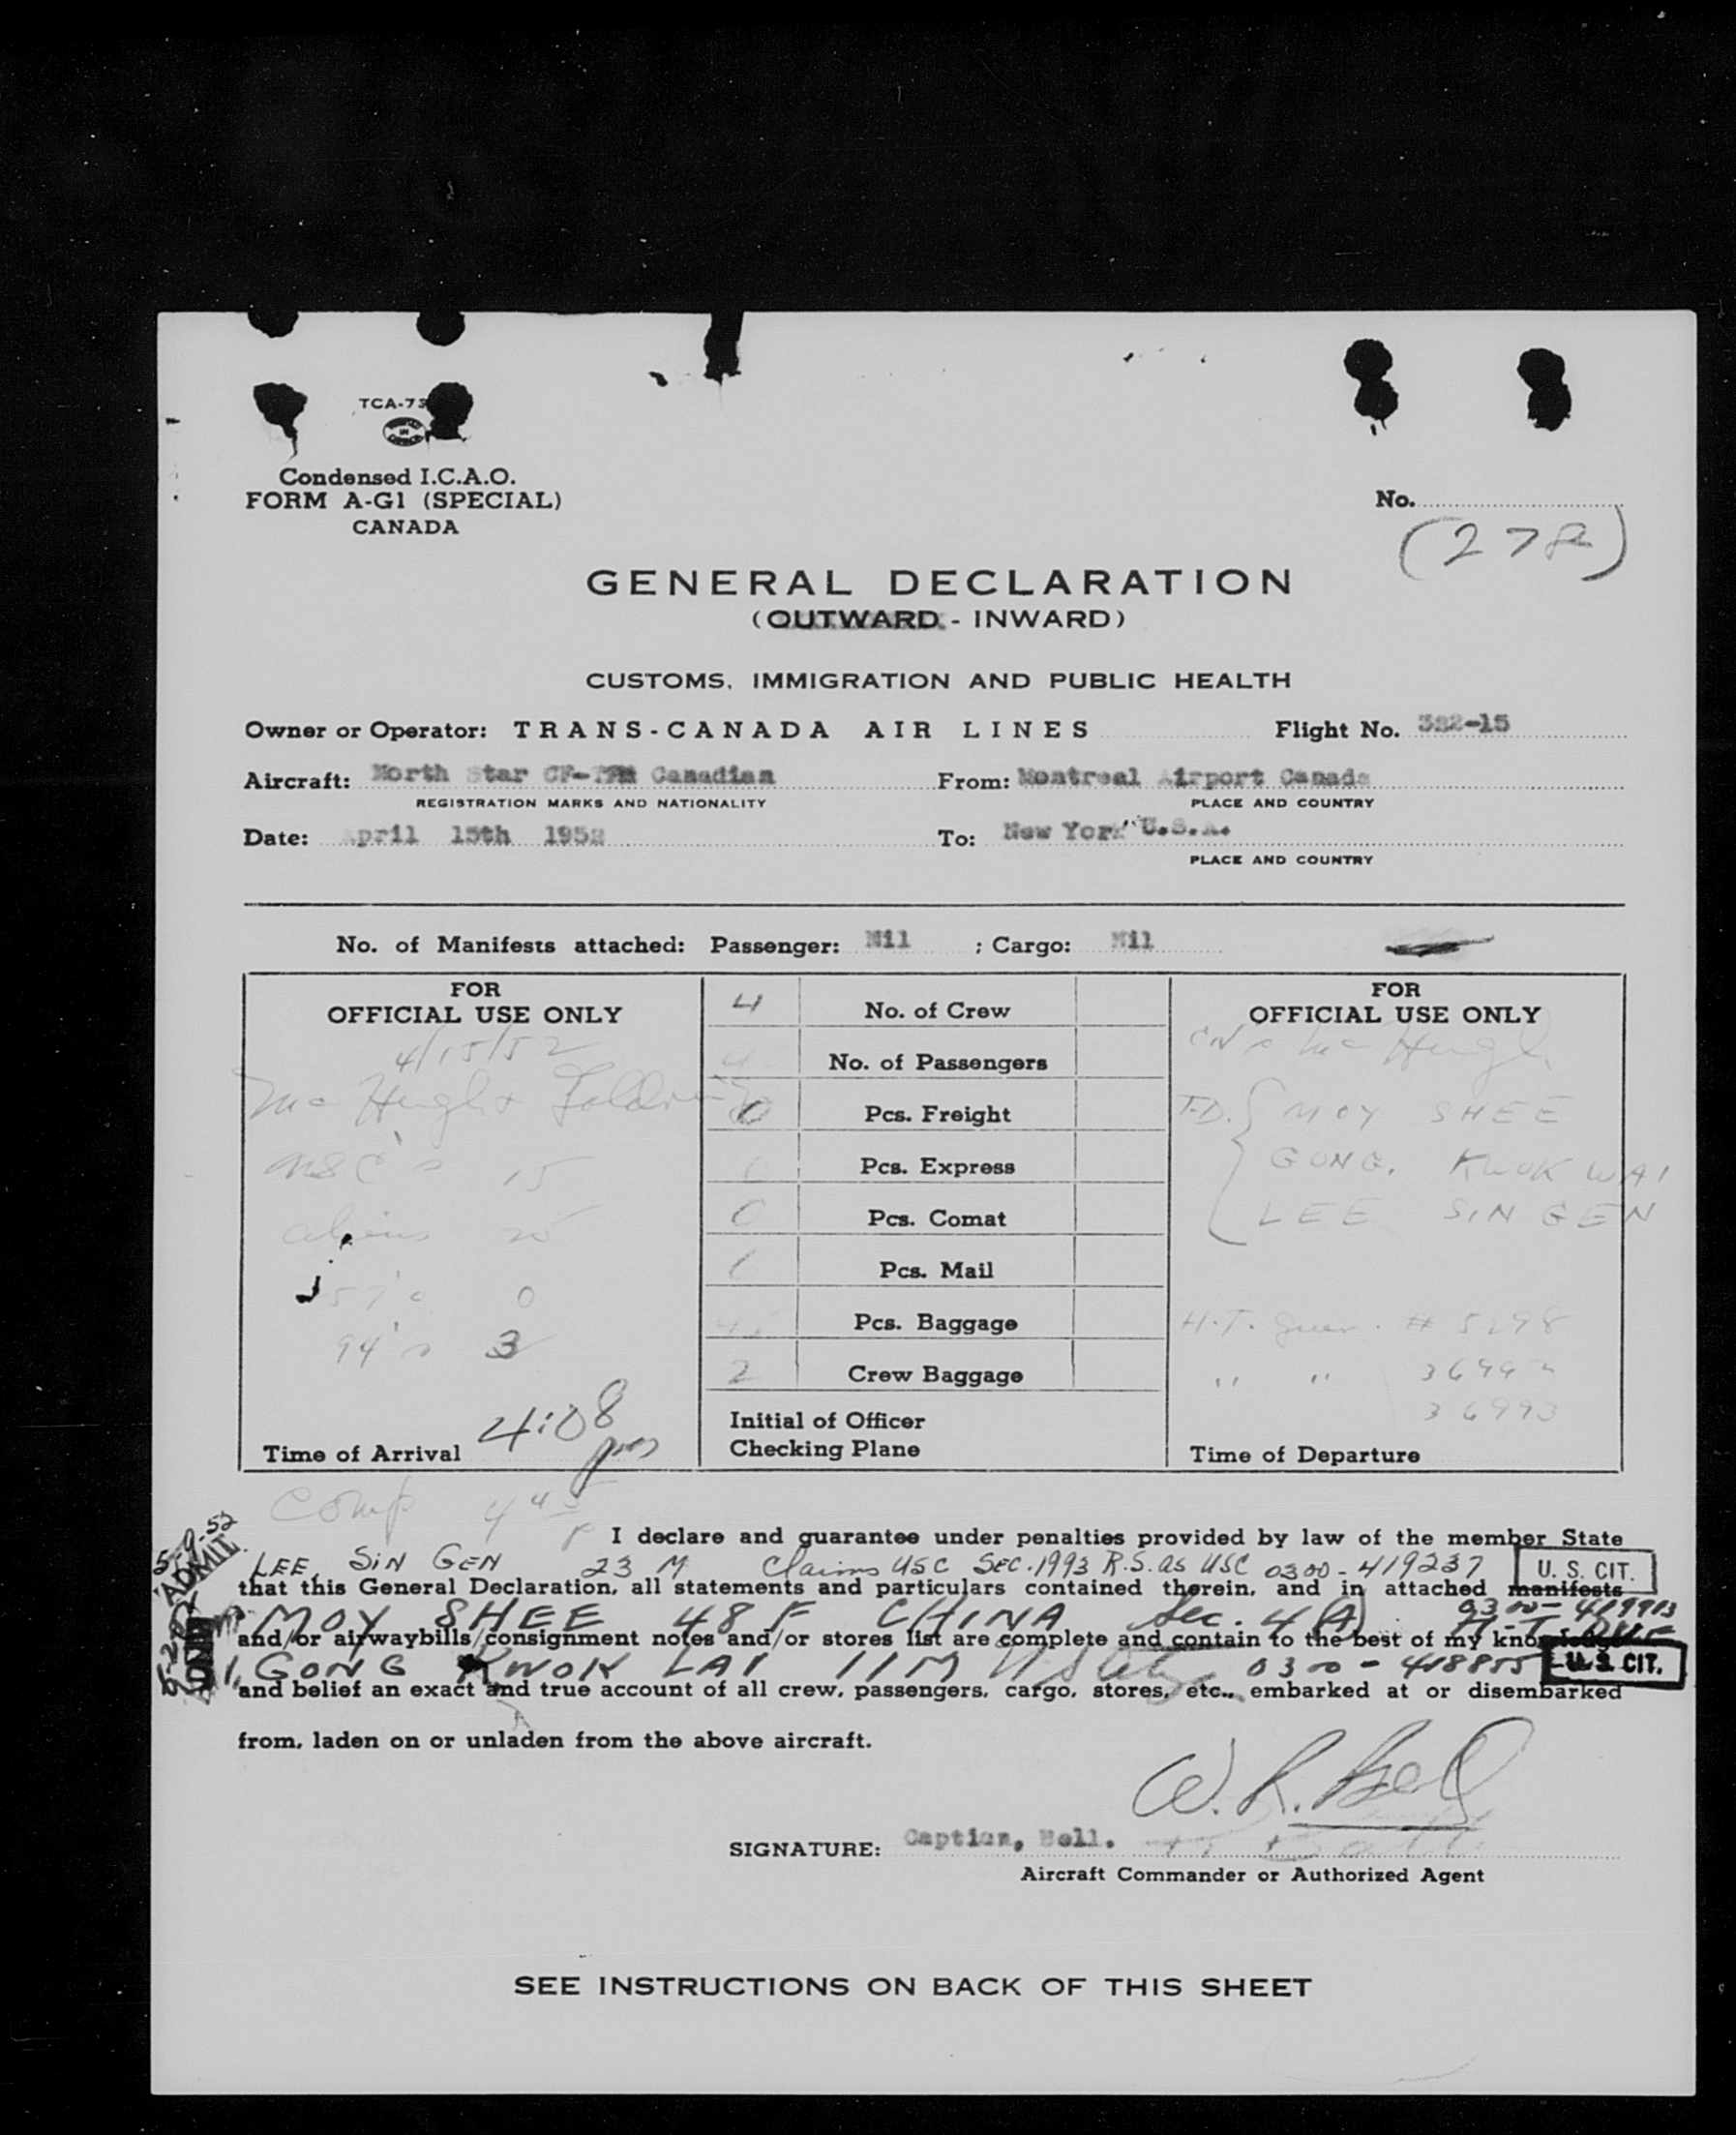 TCA-73
Condensed I.C.A.O.
FORM A-G1 (SPECIAL)
CANADA
No.
(278)
GENERAL DECLARATION
(OUTWARD - INWARD)
CUSTOMS, IMMIGRATION AND PUBLIC HEALTH
Owner or Operator: TRANS-CANADA AIR LINES Flight No. 322-15
Aircraft: North Star CF- Canadian From: Montreal Airport Canada
REGISTRATION MARKS AND NATIONALITY PLACE AND COUNTRY
Date: April 15th 1952 To: New York U.S.A.
PLACE AND COUNTRY
No. of Manifests attached: Passenger: Nil ; Cargo: Nil
FOR
OFFICIAL USE ONLY
4/15/52
McHugh &
USC's 15
aliens 25
57's 0
94's 3
Time of Arrival 4:08 pm
4 No. of Crew
No. of Passengers
0 Pcs. Freight
Pcs. Express
0 Pcs. Comat
1 Pcs. Mail
Pcs. Baggage
2 Crew Baggage
Initial of Officer
Checking Plane
FOR
OFFICIAL USE ONLY
McHugh
T.D. MOY SHEE
GONG, KWOK WAI
LEE SIN GEN
H.T. # 5298
" " 3699
36993
Time of Departure
Comp 4 45 P
I declare and guarantee under penalties provided by law of the member State
5-9-52
ADMIT
LEE, SIN GEN 23 M Claims USC SEC. 1993 R.S. as USC 0300-419237 U. S. CIT.
that this General Declaration, all statements and particulars contained therein, and in attached manifests
MOY SHEE 48 F CHINA Sec. 4(A) 0300-419913
and/or airwaybills/consignment notes and/or stores list are complete and contain to the best of my knowledge
GONG KWOK LAI 11 M 0300-418855 U. S. CIT.
and belief an exact and true account of all crew, passengers, cargo, stores, etc., embarked at or disembarked
from, laden on or unladen from the above aircraft.
W. R. Bell
SIGNATURE: Captian, Bell.
Aircraft Commander or Authorized Agent
SEE INSTRUCTIONS ON BACK OF THIS SHEET